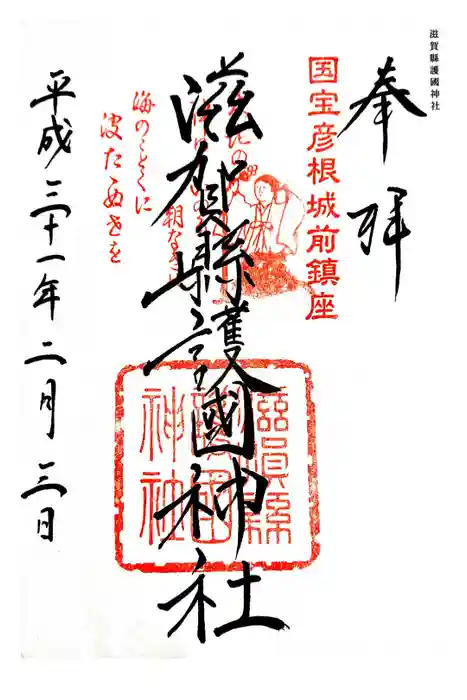 滋賀縣護國神社
奉拝
国宝彦根城前鎮座
滋賀縣護國神社
海のことくに
波たゝぬせを
滋賀縣
護國
神社
平成三十一年二月三日